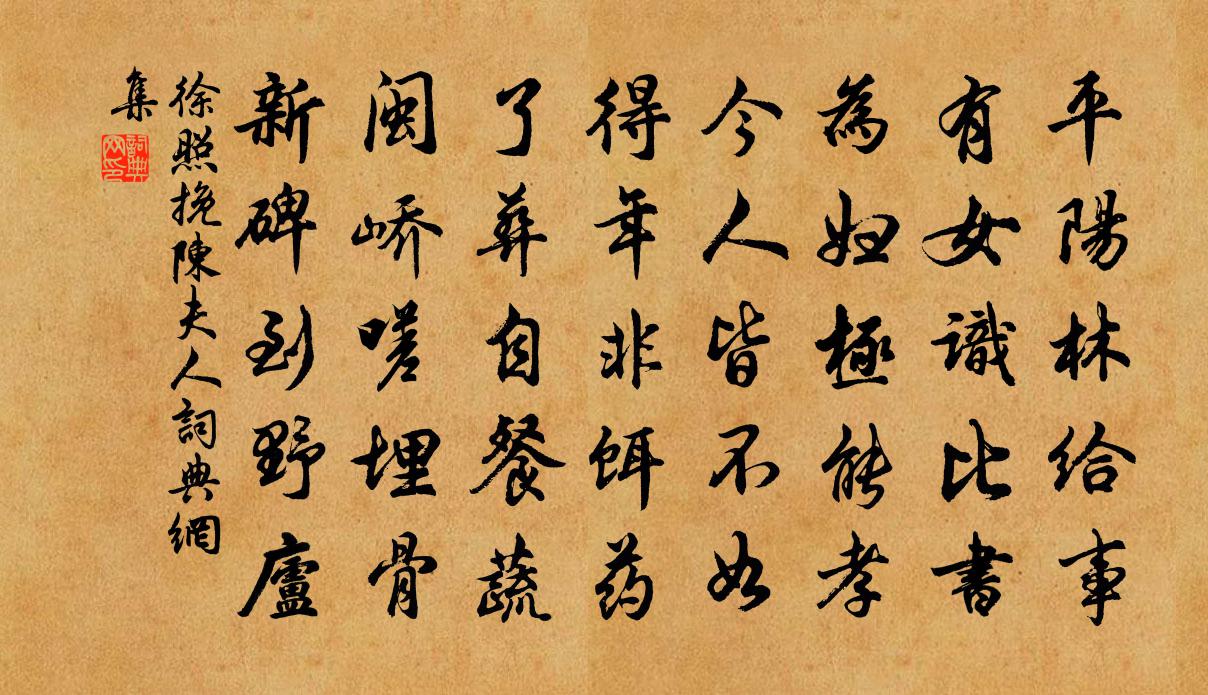 平陽林給事
有女識比書
為妇極能孝
今人皆不如
得年非餌药
了彝自餐蔬
闽峤嗟埋骨
新碑到野廬
徐照挽陳夫人詞典網
集
詞典
网印